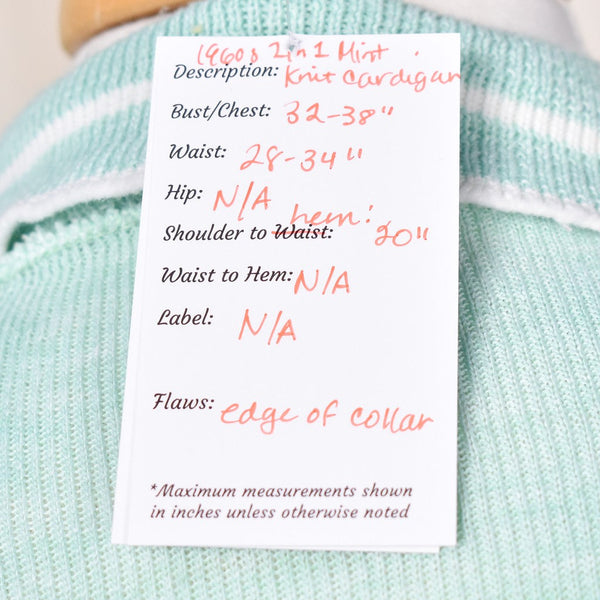 1960s 2 in 1 Mint
Description: Knit Cardigan
Bust/Chest: 32-38"
Waist: 28-34"
Hip: N/A
hem:
Shoulder to Waist: 20"
Waist to Hem: N/A
Label: N/A
Flaws: edge of collar
*Maximum measurements shown
in inches unless otherwise noted